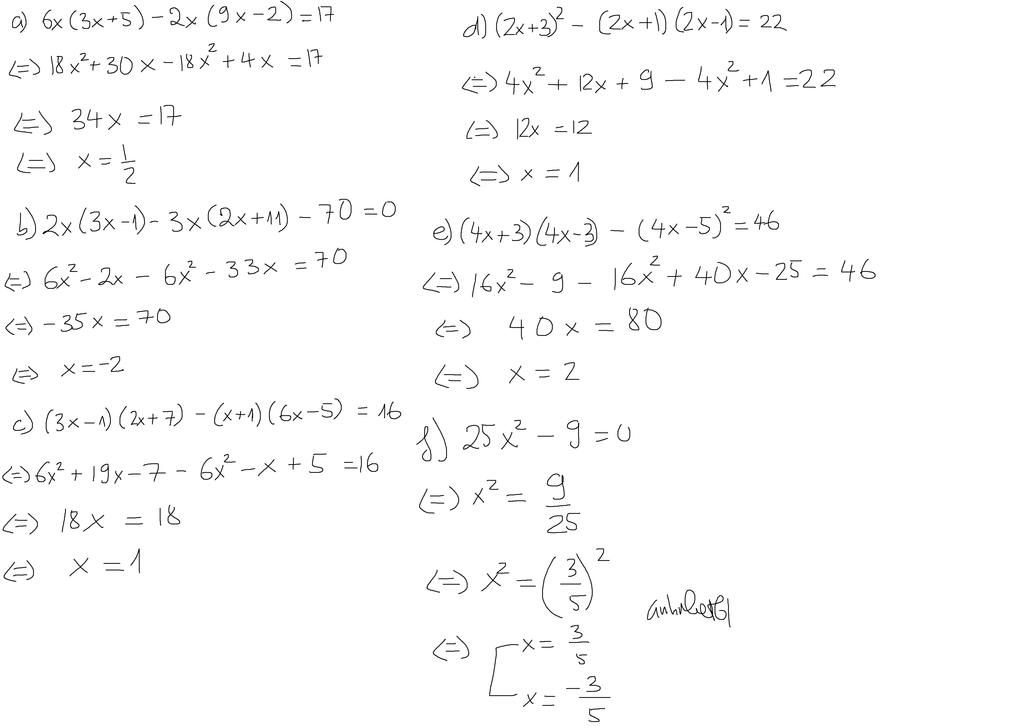 a) 6x(3x+5)-2x(9x-2)=17
<=> 18x²+30x-18x²+4x=17
<=> 34x=17
<=> x=1/2
b) 2x(3x-1)-3x(2x+11)-70=0
<=> 6x²-2x-6x²-33x=70
<=> -35x=70
<=> x=-2
c) (3x-1)(2x+7)-(x+1)(6x-5)=16
<=> 6x²+19x-7-6x²-x+5=16
<=> 18x=18
<=> x=1
d) (2x+3)²-(2x+1)(2x-1)=22
<=> 4x²+12x+9-4x²+1=22
<=> 12x=12
<=> x=1
e) (4x+3)(4x-3)-(4x-5)²=46
<=> 16x²-9-16x²+40x-25=46
<=> 40x=80
<=> x=2
f) 25x²-9=0
<=> x²=9/25
<=> x²=(3/5)²
<=> [x=3/5
x=-3/5